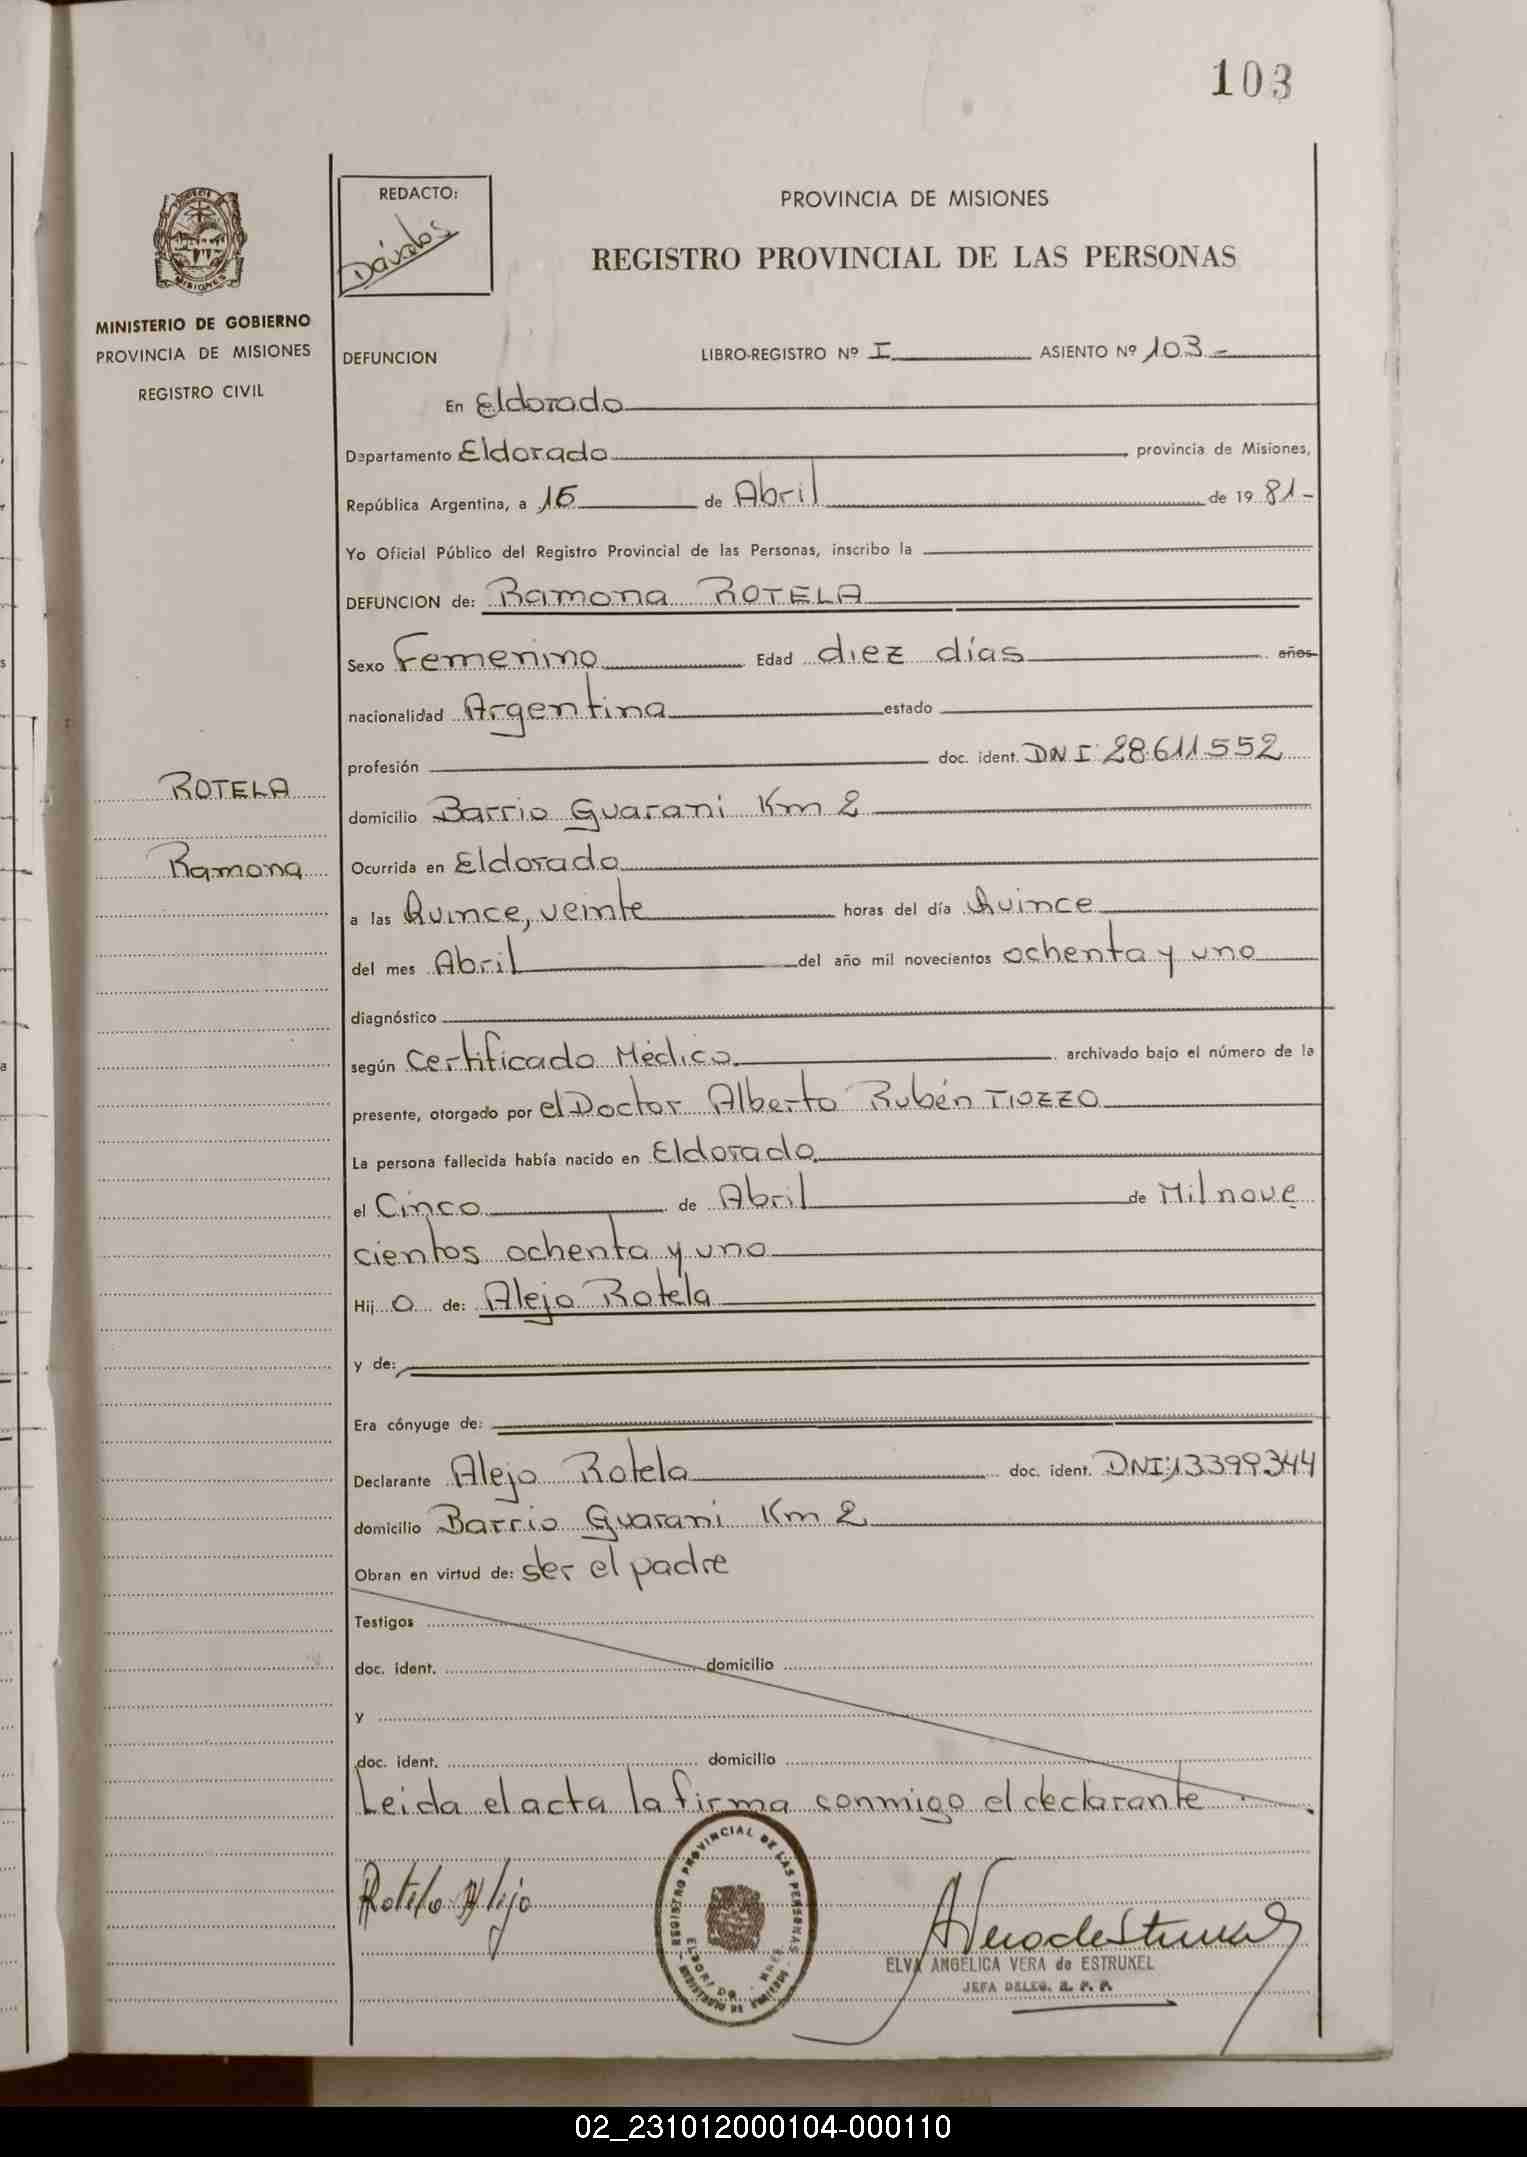 103
REDACTO:
Dávalos
PROVINCIA DE MISIONES
REGISTRO PROVINCIAL DE LAS PERSONAS
MISIONES
MINISTERIO DE GOBIERNO
PROVINCIA DE MISIONES
REGISTRO CIVIL
DEFUNCION LIBRO-REGISTRO Nº I ASIENTO Nº 103-
En Eldorado
Departamento Eldorado provincia de Misiones,
República Argentina, a 16 de Abril de 19 81-
Yo Oficial Público del Registro Provincial de las Personas, inscribo la
DEFUNCION de: Ramona ROTELA
Sexo Femenino Edad diez días años
nacionalidad Argentina estado
profesión doc. ident. DNI: 28.611.552
ROTELA
domicilio Barrio Guarani Km 2
Ramona
Ocurrida en Eldorado
a las Quince, veinte horas del día Quince
del mes Abril del año mil novecientos ochenta y uno
diagnóstico
según Certificado Médico archivado bajo el número de la
presente, otorgado por el Doctor Alberto Rubén TIOZZO
La persona fallecida había nacido en Eldorado
el Cinco de Abril de Mil nove
cientos ochenta y uno
Hij o de: Alejo Rotela
y de:
Era cónyuge de:
Declarante Alejo Rotela doc. ident. DNI: 13399344
domicilio Barrio Guarani Km 2
Obran en virtud de: ser el padre
Testigos
doc. ident. domicilio
y
doc. ident. domicilio
Leida el acta la firma conmigo el declarante
Rotela Alejo
REGISTRO PROVINCIAL DE LAS PERSONAS
ELVA ANGELICA VERA de ESTRUKEL
JEFA DELEG. R. P. P.
02_231012000104-000110